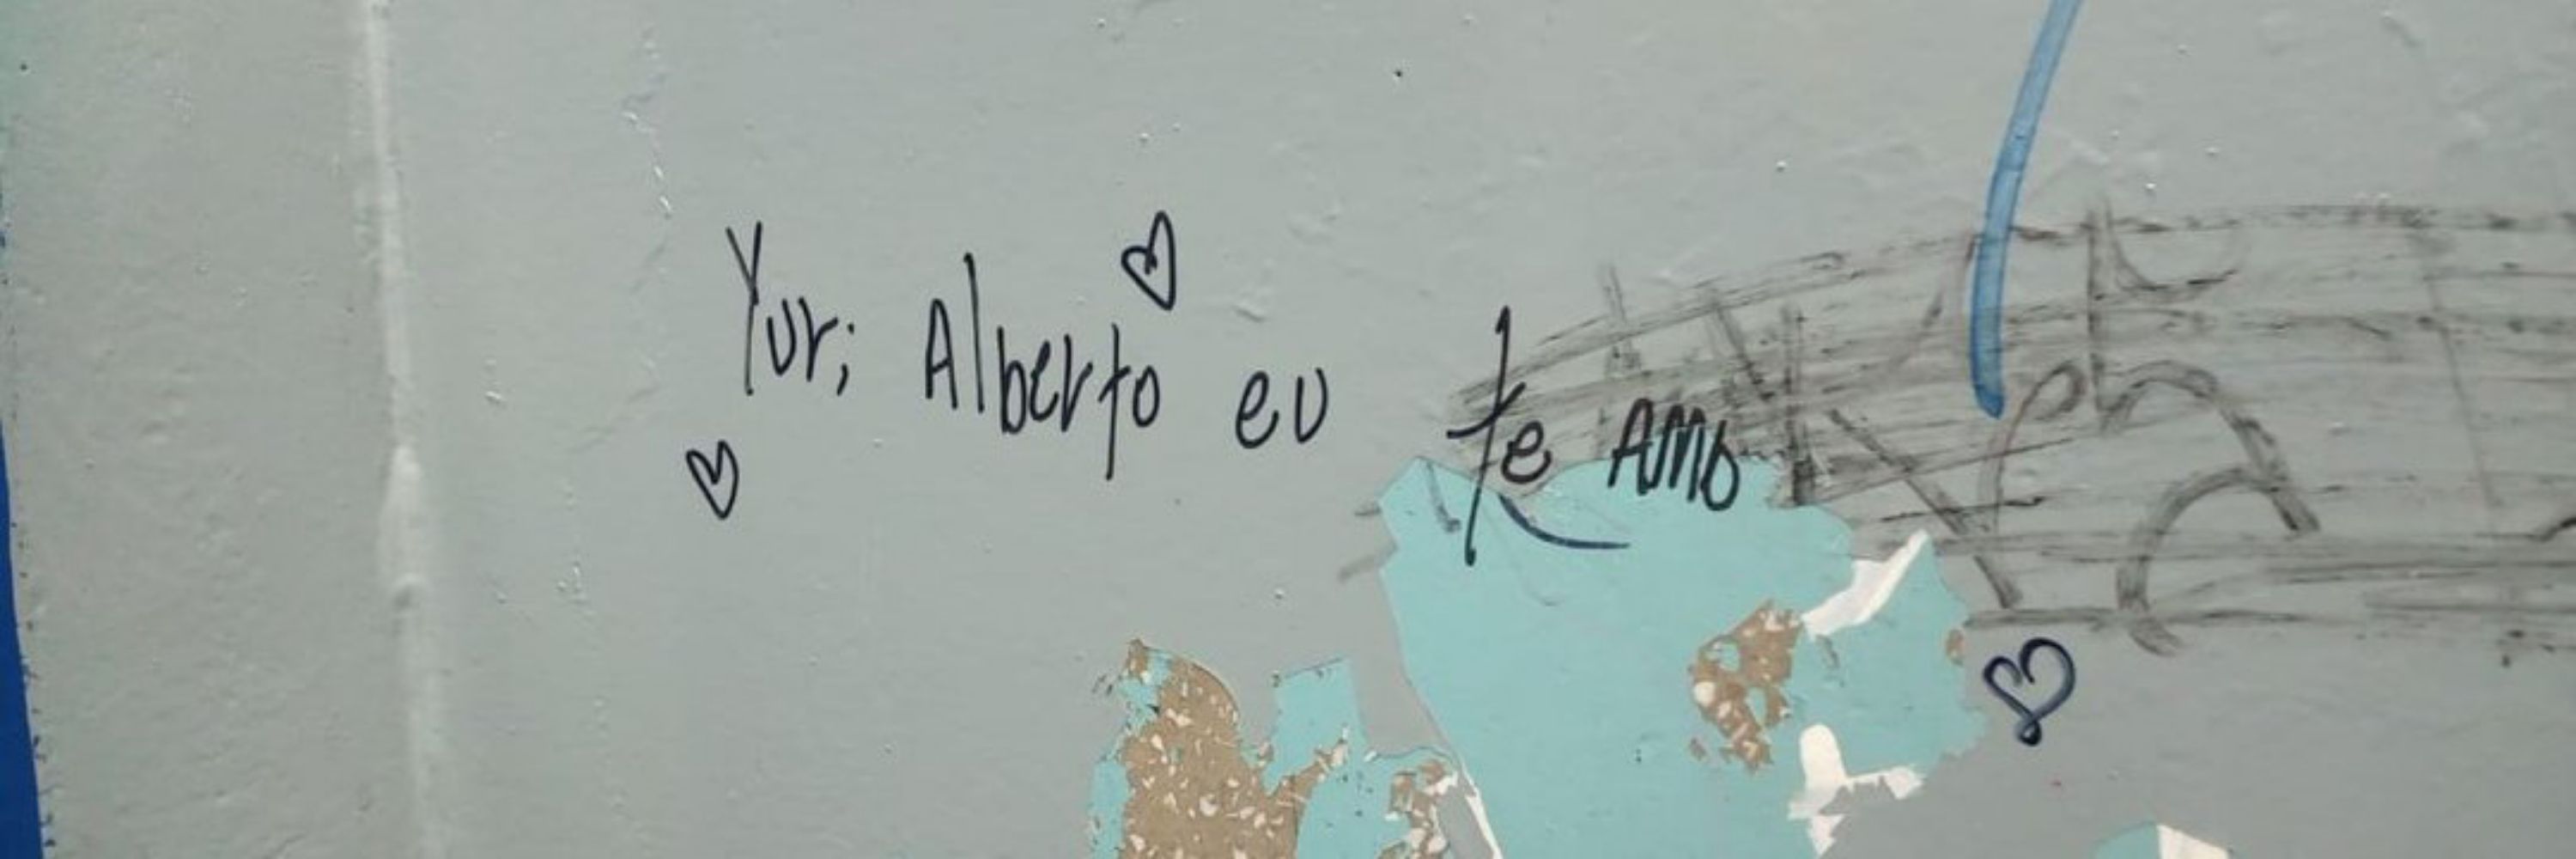 Yuri Alberto eu te Amo